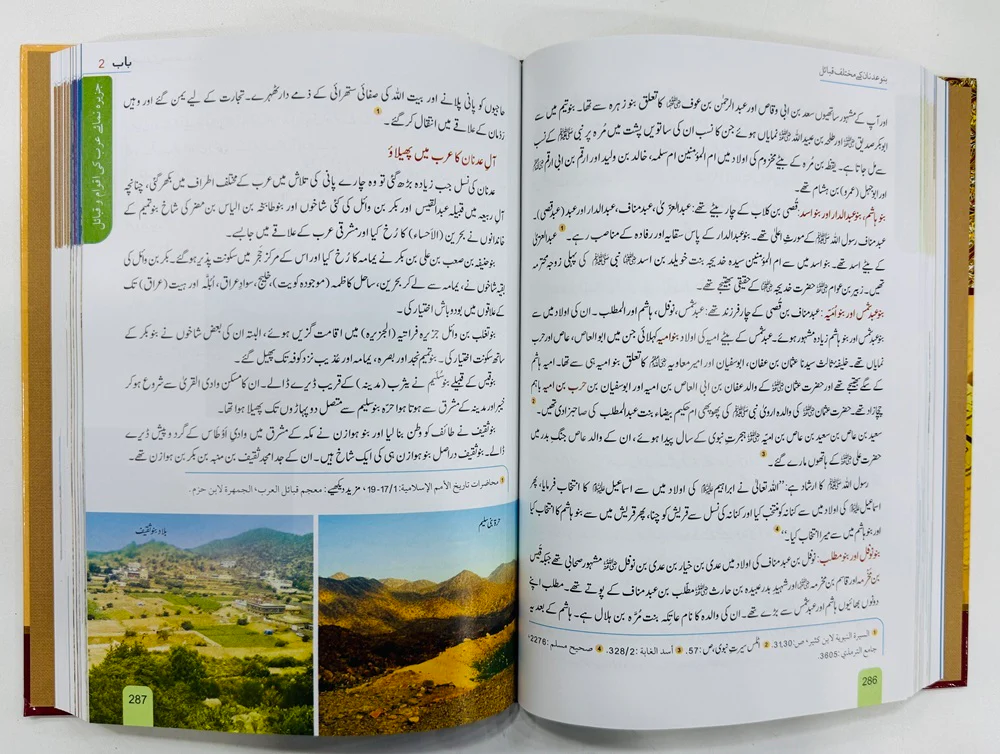 بنو عدنان کے مختلف قبائل
اور آپ کے مشہور ساتھیوں سعد بن ابی وقاص اور عبدالرحمٰن بن عوف کا تعلق بنو زہرہ سے تھا۔ بنو تیم میں سے
ابوبکر صدیق اور طلحہ بن عبید اللہ نمایاں ہوئے جن کا نسب ان کی ساتویں پشت میں مُرہ پر نبی ﷺ کے نسب
سے مل جاتا ہے۔ یقظہ بن مُرہ کے بیٹے مخزوم کی اولاد میں ام المؤمنین ام سلمہ، خالد بن ولید اور ارقم بن ابی ارقم
اور ابوجہل (عمرو) بن ہشام تھے۔
بنو ہاشم، بنو عبدالدار اور بنو اسد: قُصی بن کلاب کے چار بیٹے تھے: عبدالعزیٰ، عبدمناف، عبدالدار اور عبد (عبدقصی)۔
عبدمناف رسول اللہ ﷺ کے مورثِ اعلیٰ تھے۔ بنو عبدالدار کے پاس سقایہ اور رفادہ کے مناصب رہے۔ ❶ عبدالعزیٰ
کے بیٹے اسد تھے۔ بنو اسد میں سے ام المؤمنین سیدہ خدیجہ بنت خویلد بن اسد نبی ﷺ کی پہلی زوجہ محترمہ
تھیں۔ زبیر بن عوام حضرت خدیجہ کے حقیقی بھتیجے تھے۔
بنو عبدشمس اور بنو امیہ: عبدمناف بن قُصی کے چار فرزند تھے: عبدشمس، نوفل، ہاشم اور المطلب۔ ان کی اولاد میں سے
بنو عبدشمس اور بنو ہاشم زیادہ مشہور ہوئے۔ عبدشمس کے بیٹے امیہ کی اولاد بنو امیہ کہلائی جن میں ابوالعاص، عاص اور حرب
نمایاں تھے۔ خلیفہ ثالث سیدنا عثمان بن عفان، ابوسفیان اور امیر معاویہ کا تعلق بنو امیہ ہی سے تھا۔ امیہ ہاشم
کے سگے بھتیجے تھے اور حضرت عثمان کے والد عفان بن ابی العاص بن امیہ اور ابوسفیان بن حرب بن امیہ باہم
چچازاد تھے۔ حضرت عثمان کی والدہ ارویٰ نبی ﷺ کی پھوپھی ام حکیم بیضاء بنت عبدالمطلب کی صاحبزادی تھیں۔ ❷
سعید بن عاص بن سعید بن عاص بن امیہ ہجرتِ نبوی کے سال پیدا ہوئے، ان کے والد عاص جنگِ بدر میں
حضرت علی کے ہاتھوں مارے گئے۔ ❸
رسول اللہ ﷺ کا ارشاد ہے: "اللہ تعالیٰ نے ابراہیم کی اولاد میں سے اسماعیل کا انتخاب فرمایا، پھر
اسماعیل کی اولاد میں سے کنانہ کو منتخب کیا اور کنانہ کی نسل سے قریش کو چنا، پھر قریش میں سے بنو ہاشم کا انتخاب کیا
اور بنو ہاشم میں سے میرا انتخاب کیا۔" ❹
بنو نوفل اور بنو مطلب: نوفل بن عبدمناف کی اولاد میں عدی بن خیار بن عدی بن نوفل مشہور صحابی تھے جبکہ قیس
بن مخرمہ اور قاسم بن مخرمہ اور شہیدِ بدر عبیدہ بن حارث مطلب بن عبدمناف کے پوتے تھے۔ مطلب اپنے
دونوں بھائیوں ہاشم اور عبدشمس سے بڑے تھے۔ ان کی والدہ کا نام عاتکہ بنت مُرّہ بن ہلال ہے۔ ہاشم کے بعد یہ
❶ السيرة النبوية لابن كثير، ص:31,30. ❷ اٹلس سیرت نبوی، ص:57. ❸ أسد الغابة:328/2. ❹ صحيح مسلم:2276،
جامع الترمذي:3605.
286
باب 2
جزیرہ نمائے عرب کی اقوام و قبائل
حاجیوں کو پانی پلانے اور بیت اللہ کی صفائی ستھرائی کے ذمے دار ٹھہرے۔ تجارت کے لیے یمن گئے اور وہیں
رَدْمان کے علاقے میں انتقال کر گئے۔ ❶
آلِ عدنان کا عرب میں پھیلاؤ
عدنان کی نسل جب زیادہ بڑھ گئی تو وہ چارے پانی کی تلاش میں عرب کے مختلف اطراف میں بکھر گئی، چنانچہ
آل ربیعہ میں قبیلہ عبدالقیس اور بکر بن وائل کی کئی شاخوں اور بنو طابخہ بن الیاس بن مضر کی شاخ بنو تمیم کے
خاندانوں نے بحرین (الأحساء) کا رُخ کیا اور مشرقی عرب کے علاقے میں جا بسے۔
بنو حنیفہ بن صعب بن علی بن بکر نے یمامہ کا رُخ کیا اور اس کے مرکز حَجْر میں سکونت پذیر ہو گئے۔ بکر بن وائل کی
بقیہ شاخوں نے، یمامہ سے لے کر بحرین، ساحل کاظمہ (موجودہ کویت)، خلیج، سوادِ عراق، اُبُلّہ اور ہیت (عراق) تک
کے علاقوں میں بود و باش اختیار کی۔
بنو تغلب بن وائل جزیرہ فراتیہ (الجزیرہ) میں اقامت گزیں ہوئے، البتہ ان کی بعض شاخوں نے بنو بکر کے
ساتھ سکونت اختیار کی۔ بنو تمیم نجد اور بصرہ، یمامہ اور عذیب نزد کوفہ تک پھیل گئے۔
بنو قیس کے قبیلے بنو سُلیم نے یثرب (مدینہ) کے قریب ڈیرے ڈالے۔ ان کا مسکن وادی القریٰ سے شروع ہو کر
خیبر اور مدینہ کے مشرق سے ہوتا ہوا حرّہ بنو سلیم سے متصل دو پہاڑوں تک پھیلا ہوا تھا۔
بنو ثقیف نے طائف کو وطن بنا لیا اور بنو ہوازن نے مکہ کے مشرق میں وادیِ اَوْطاس کے گرد و پیش ڈیرے
ڈالے۔ بنو ثقیف دراصل بنو ہوازن ہی کی ایک شاخ ہیں۔ ان کے جدِ امجد ثقیف بن منبہ بن بکر بن ہوازن تھے۔
❶ محاضرات تاريخ الأمم الإسلامية:17/1-19، مزید دیکھیے: معجم قبائل العرب، الجمهرة لابن حزم.
حرّہ بنی سلیم
بلادِ بنو ثقیف
287